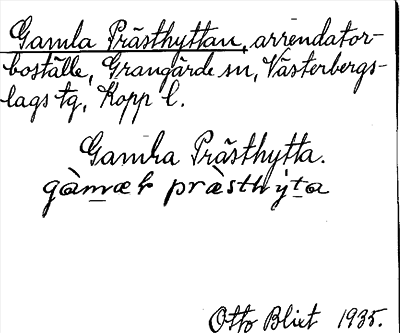 Gamla Prästhyttan, arrendator-
boställe, Grangärde sn, Västerbergs-
lags tg, Kopp l.
Gamla Prästhytta.
gàmæł præsthy̆ta
Otto Blixt 1935.